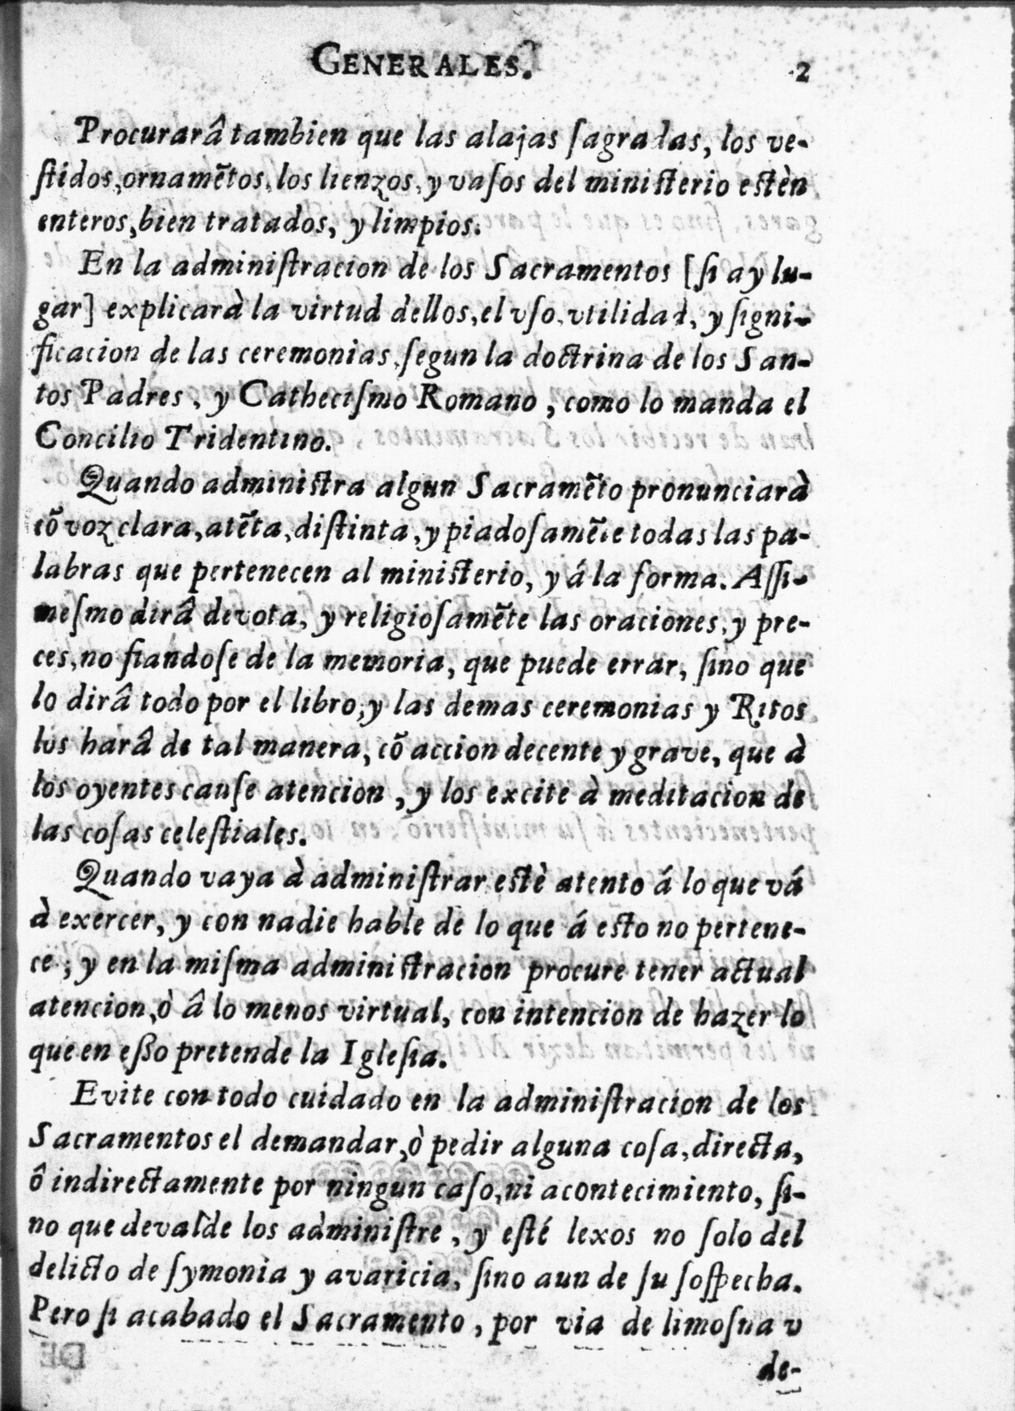 GENERALES. 2
Procurarâ tambien que las alajas ſagradas, los ve-
ſtidos, ornamẽtos, los lienzos, y vaſos del miniſterio eſtèn
enteros, bien tratados, y limpios.
En la adminiſtracion de los Sacramentos [ſi ay lu-
gar] explicarà la virtud dellos, el vſo, vtilidad, y ſigni-
ficacion de las ceremonias, ſegun la doctrina de los San-
tos Padres, y Catheciſmo Romano, como lo manda el
Concilio Tridentino.
Quando adminiſtra algun Sacramẽto pronunciarà
cõ voz clara, atẽta, diſtinta, y piadoſamẽte todas las pa-
labras que pertenecen al miniſterio, y á la forma. Aſſi-
meſmo dirâ devota, y religioſamẽte las oraciones, y pre-
ces, no fiandoſe de la memoria, que puede errar, ſino que
lo dirâ todo por el libro, y las demas ceremonias y Ritos
los harâ de tal manera, cõ accion decente y grave, que à
los oyentes cauſe atencion, y los excite à meditacion de
las coſas celeſtiales.
Quando vaya à adminiſtrar eſtè atento á lo que vá
à exercer, y con nadie hable de lo que á eſto no pertene-
ce; y en la miſma adminiſtracion procure tener actual
atencion, ò â lo menos virtual, con intencion de hazer lo
que en eßo pretende la Igleſia.
Evite con todo cuidado en la adminiſtracion de los
Sacramentos el demandar, ò pedir alguna coſa, directa,
ô indirectamente por ningun caſo, ni acontecimiento, ſi-
no que devalde los adminiſtre, y eſté lexos no ſolo del
delicto de ſymonia y avaricia, ſino aun de ſu ſoſpecha.
Pero ſi acabado el Sacramento, por via de limoſna v
de-